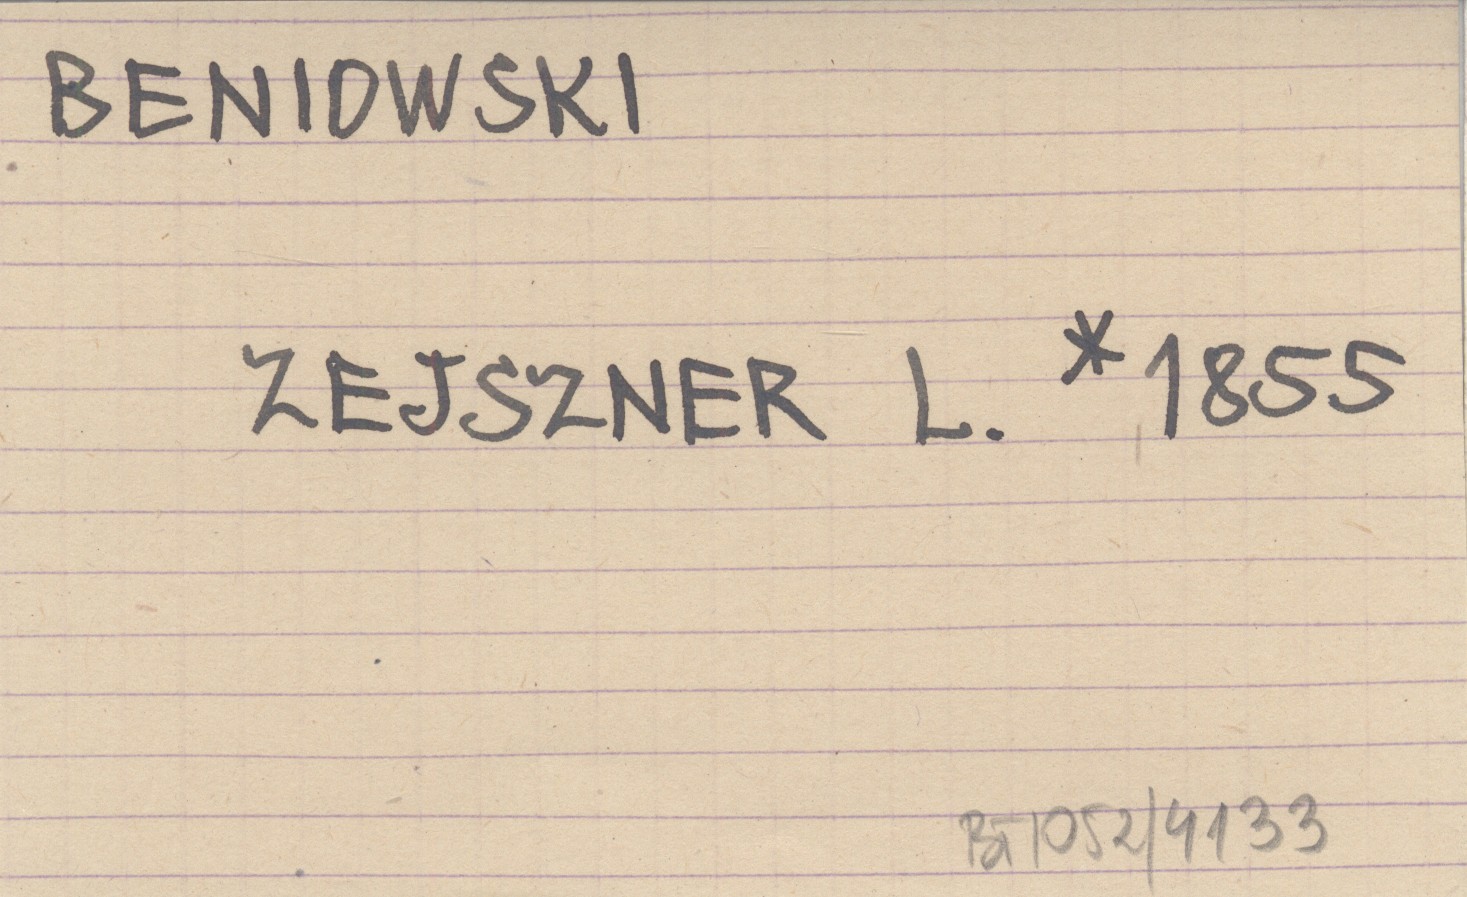 BENIOWSKI
ZEJSZNER L. *1855
BJ 1052/4133